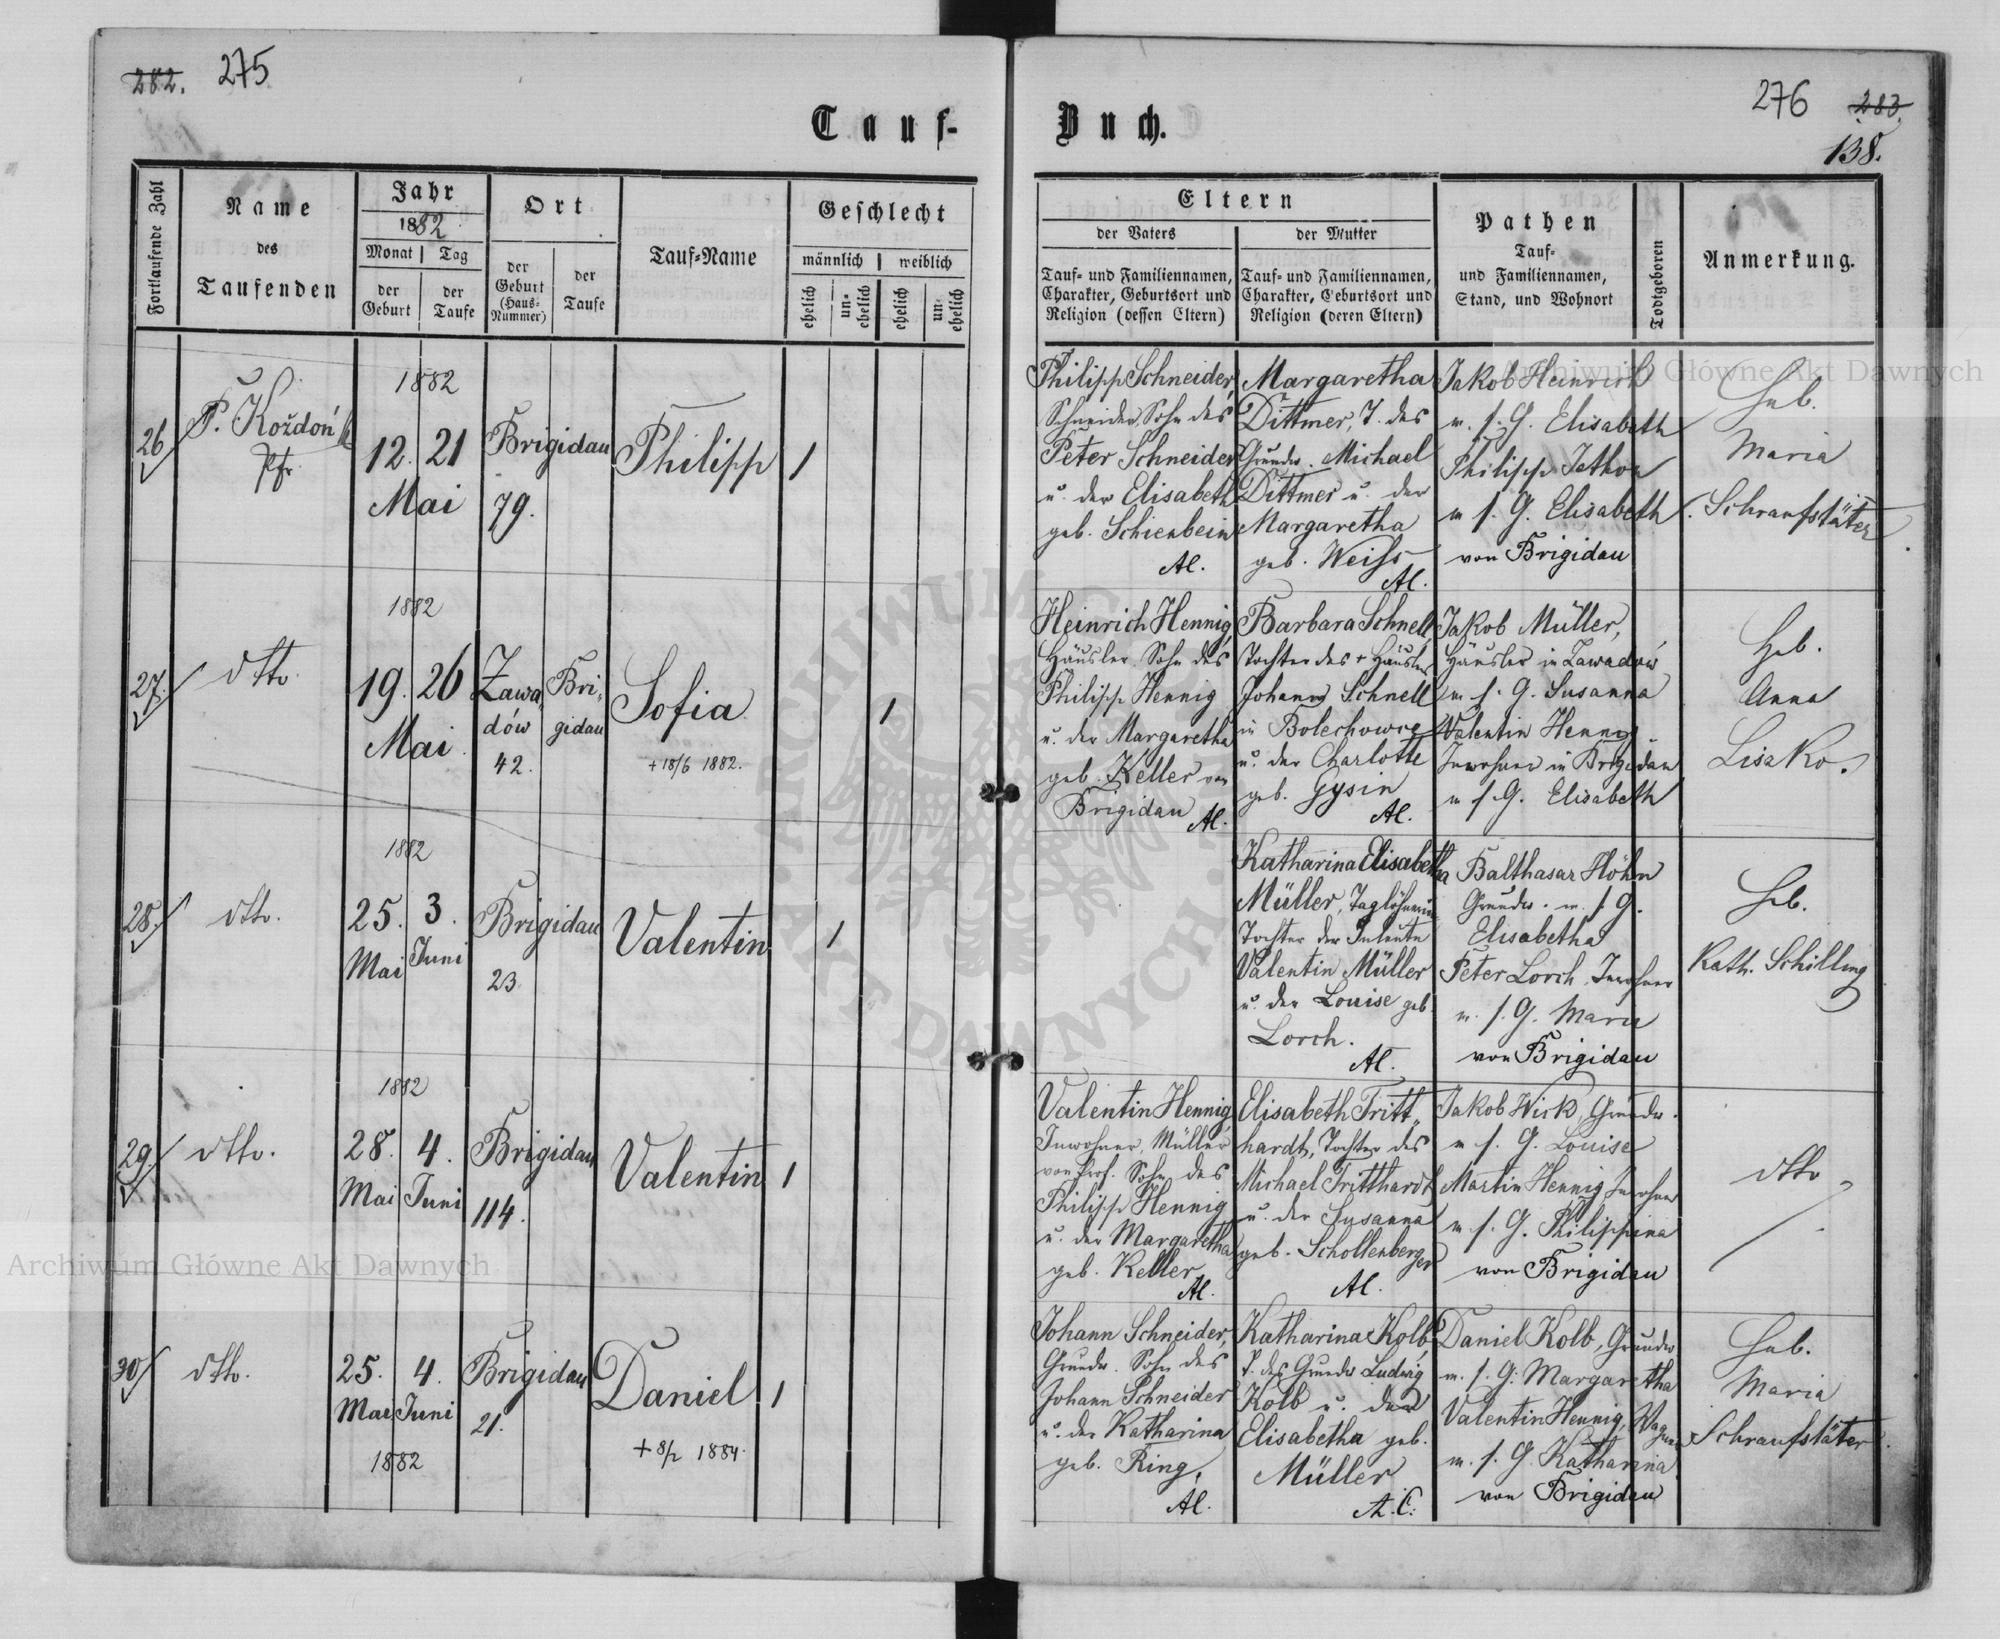 282. 275
Tauf-
Fortlaufende Zahl
Name
des
Taufenden
Jahr
1882
Monat Tag
der
Geburt
der
Taufe
Ort
der
Geburt
(Haus-
Nummer)
der
Taufe
Tauf=Name
Geschlecht
männlich weiblich
ehelich
un-
ehelich
ehelich
un-
ehelich
26
P. Koždoń
Pfr.
1882
12. 21
Mai
Brigidau
79.
Philipp
1
27.
dtto.
1882
19. 26
Mai
Zawa-
dów
42.
Bri-
gidau
Sofia
+ 18/6 1882.
1
28.
dtto.
1882
25. 3.
Mai Juni
Brigidau
23.
Valentin
1
29.
dtto.
1882
28. 4.
Mai Juni
Brigidau
114.
Valentin
1
30
dtto.
25. 4.
Mai Juni
1882
Brigidau
21.
Daniel
+ 8/2 1884.
1
Buch.
276 283.
138.
Eltern
der Vaters
Tauf= und Familiennamen,
Charakter, Geburtsort und
Religion (dessen Eltern)
der Mutter
Tauf= und Familiennamen,
Charakter, Geburtsort und
Religion (deren Eltern)
Pathen
Tauf=
und Familiennamen,
Stand, und Wohnort
Totgeboren
Anmerkung.
Philipp Schneider,
Schneider, Sohn des
Peter Schneider
u. der Elisabeth
geb. Schienbein
Al.
Margaretha
Dittmer, T. des
Grundw. Michael
Dittmer u. der
Margaretha
geb. Weiß
Al.
Jakob Heinrich
m. s. G. Elisabeth
Philipp Jathon
m s. G. Elisabeth
von Brigidau
Heb.
Maria
Schraufstäter
Heinrich Hennig,
Häusler, Sohn des
Philipp Hennig
u. der Margaretha
geb. Keller von
Brigidau
Al.
Barbara Schnell,
Tochter des + Häusler
Johann Schnell
in Bolechowce
u. der Charlotte
geb. Gysin
Al.
Jakob Müller,
Häusler in Zawadów
m. s. G. Susanna
Valentin Hennig
Inwohner in Brigidau
m s. G. Elisabeth
Heb.
Anna
Lisako.
Katharina Elisabetha
Müller, Taglöhnerin
Tochter der Inleute
Valentin Müller
u. der Louise geb.
Lorch.
Al.
Balthasar Höhn
Grundw. m. s G.
Elisabetha
Peter Lorch, Inwohner
m. s. G. Maria
von Brigidau
Heb.
Kath. Schilling
Valentin Hennig
Inwohner, Müller
von Prof. Sohn des
Philipp Hennig
u. der Margaretha
geb. Keller
Al.
Elisabeth Tritt-
hardt, Tochter des
Michael Tritthardt
u. der Susanna
geb. Schollenberger
Al.
Jakob Wick, Grundw.
m s. G. Louise
Martin Hennig Inwohner
m. s. G. Philippina
von Brigidau
dtto
Johann Schneider,
Grundw. Sohn des
Johann Schneider
u. der Katharina
geb. Ring,
Al.
Katharina Kolb,
T. des Grundw Ludwig
Kolb u. der
Elisabetha geb.
Müller
A. C.
Daniel Kolb, Grundw
m. s. G. Margaretha
Valentin Hennig, Wagner
m. s. G. Katharina
von Brigidau
Heb.
Maria
Schraufstäter
Archiwum Główne Akt Dawnych
Archiwum Główne Akt Dawnych
ARCHIWUM GŁÓWNE AKT DAWNYCH